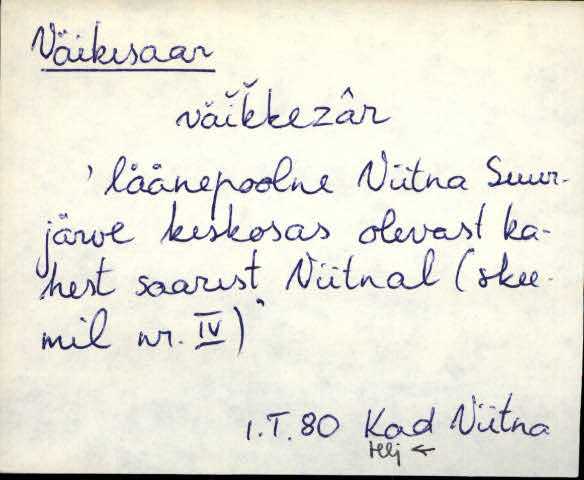 Väikesaar
väĭk̆kezâr
' läänepoolne Viitna Suur-
järve keskosas olevast ka-
hest saarest Viitnal (skee-
mil nr. IV) '
I.T.80 Kad Viitna
Hlj ←